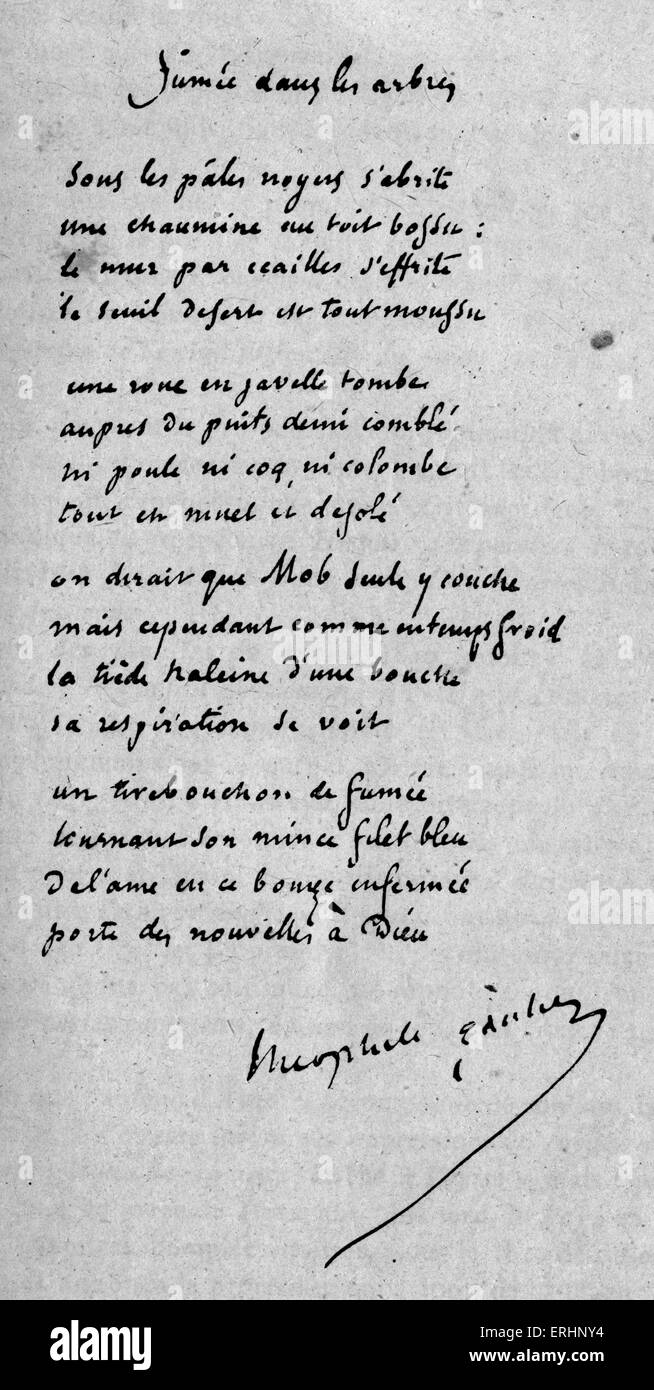 fumée dans les arbres
sous les pâles noyers s'abrite
une chaumine au toit bossu :
le mur par ecailles s'effrite
le seuil desert est tout moussu
une roue en javelle tombe
aupres du puits demi comblé
ni poule ni coq, ni colombe
tout est muet et desolé
on dirait que Mob seule y couche
mais cependant comme en temps froid
la tiède haleine d'une bouche
sa respiration se voit
un tirebouchon de fumée
tournant son mince filet bleu
de l'ame en ce bouge enfermée
porte des nouvelles à Dieu
theophile gautier
alamy
alamy
alamy
a
a
a
alamy
Image ID: ERHNY4
www.alamy.com